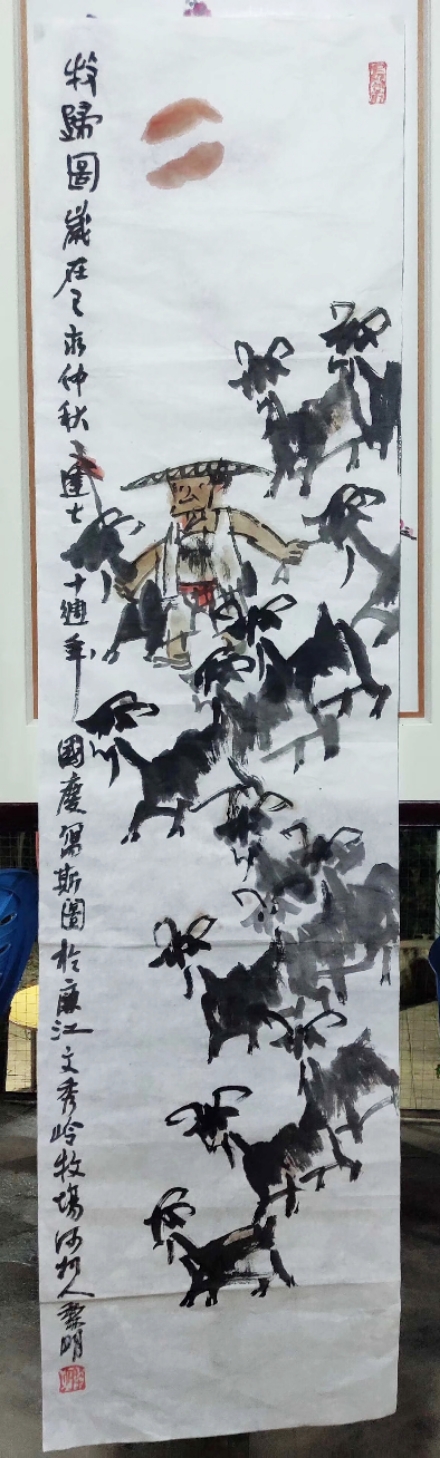 牧歸圖歲在己亥仲秋逢七十週年國慶寫斯圖於廉江文秀岭牧場人黎明